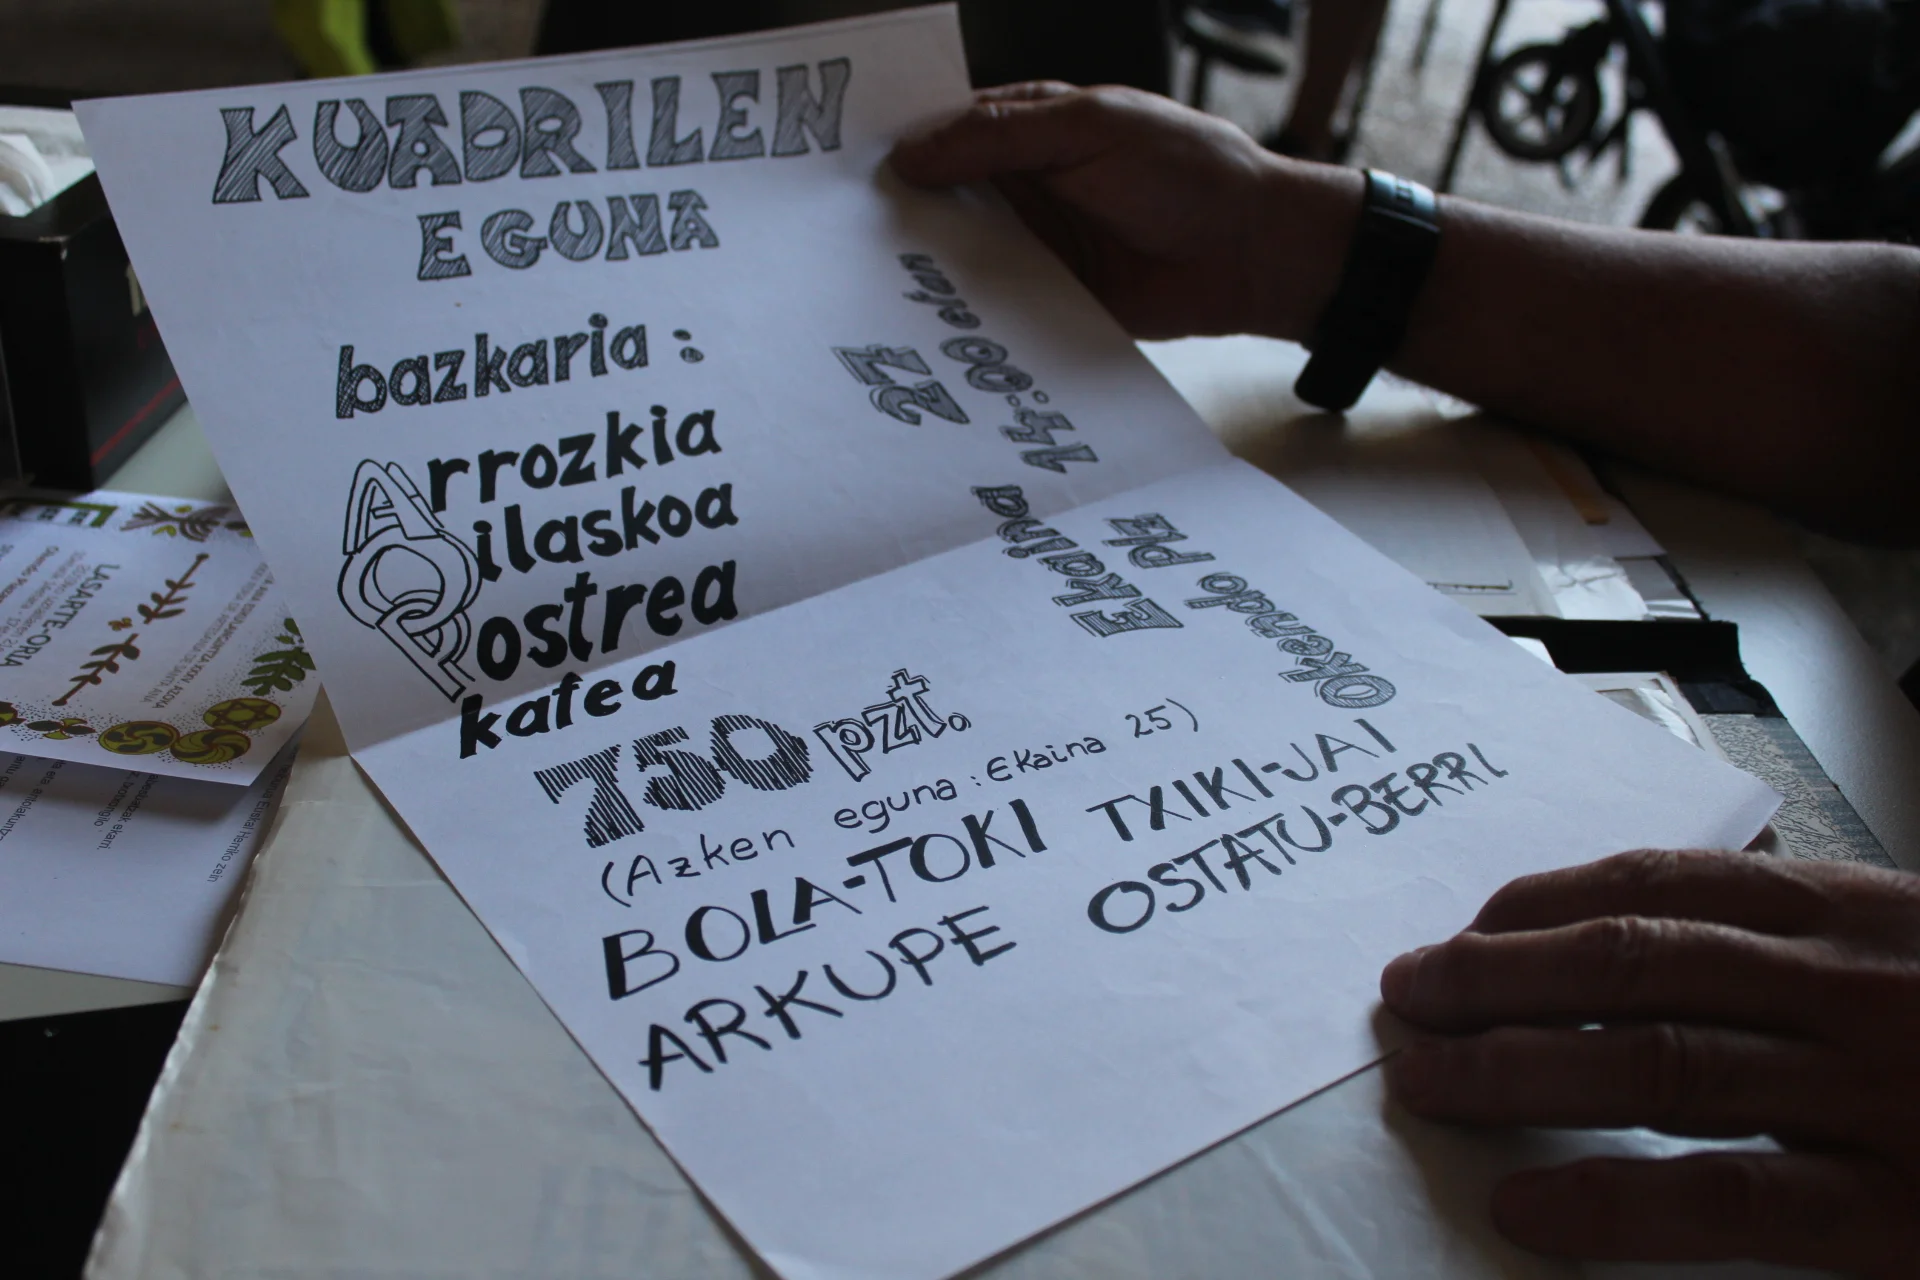 KUADRILEN
EGUNA
bazkaria:
Arrozkia
Oilaskoa
Postrea
kafea
750 pzt.
(Azken eguna: Ekaina 25)
BOLA-TOKI TXIKI-JAI
ARKUPE OSTATU-BERRI
Ekaina 27
14:00 etan
Okendo plz
LASARTE-ORIA